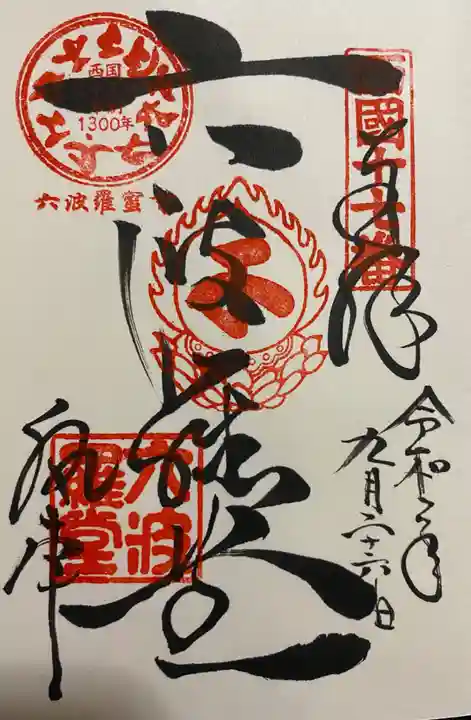 奉拝
西國十七番
令和二年
九月二十六日
六波羅堂
西国
1300年
六波羅蜜寺
六波羅堂